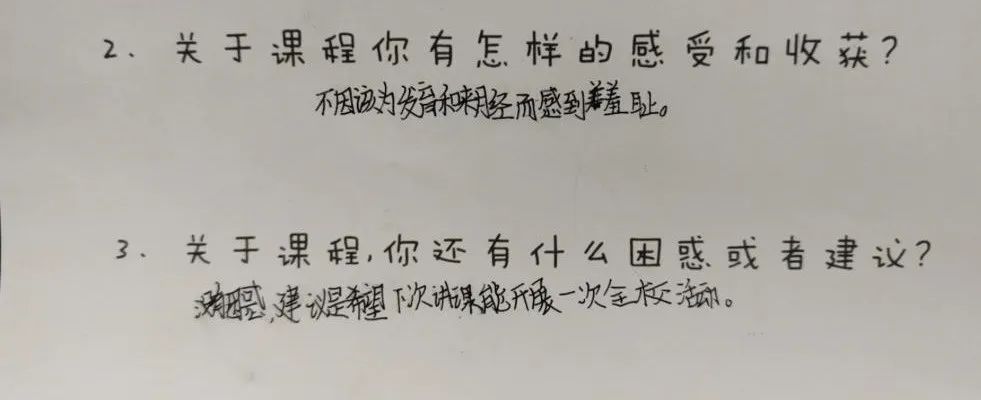 2、关于课程你有怎样的感受和收获?
不因该为发育和来月经而感到羞耻。
3、关于课程,你还有什么困惑或者建议?
没有困惑,建议是希望下次讲课能开展一次全校活动。